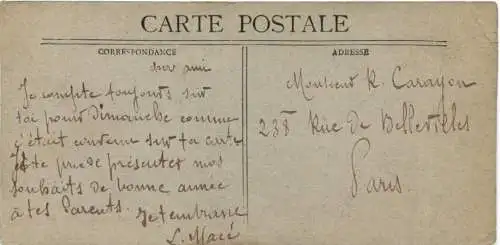 CARTE POSTALE
CORRESPONDANCE
ADRESSE
cher ami
Je compte toujours sur
toi pour Dimanche comme
c'était convenu sur ta carte
Je te prie de présenter nos
souhaits de bonne année
à tes Parents. Je t'embrasse
L. Macé
Monsieur R. Carayon
238 Rue de Belleville
Paris.